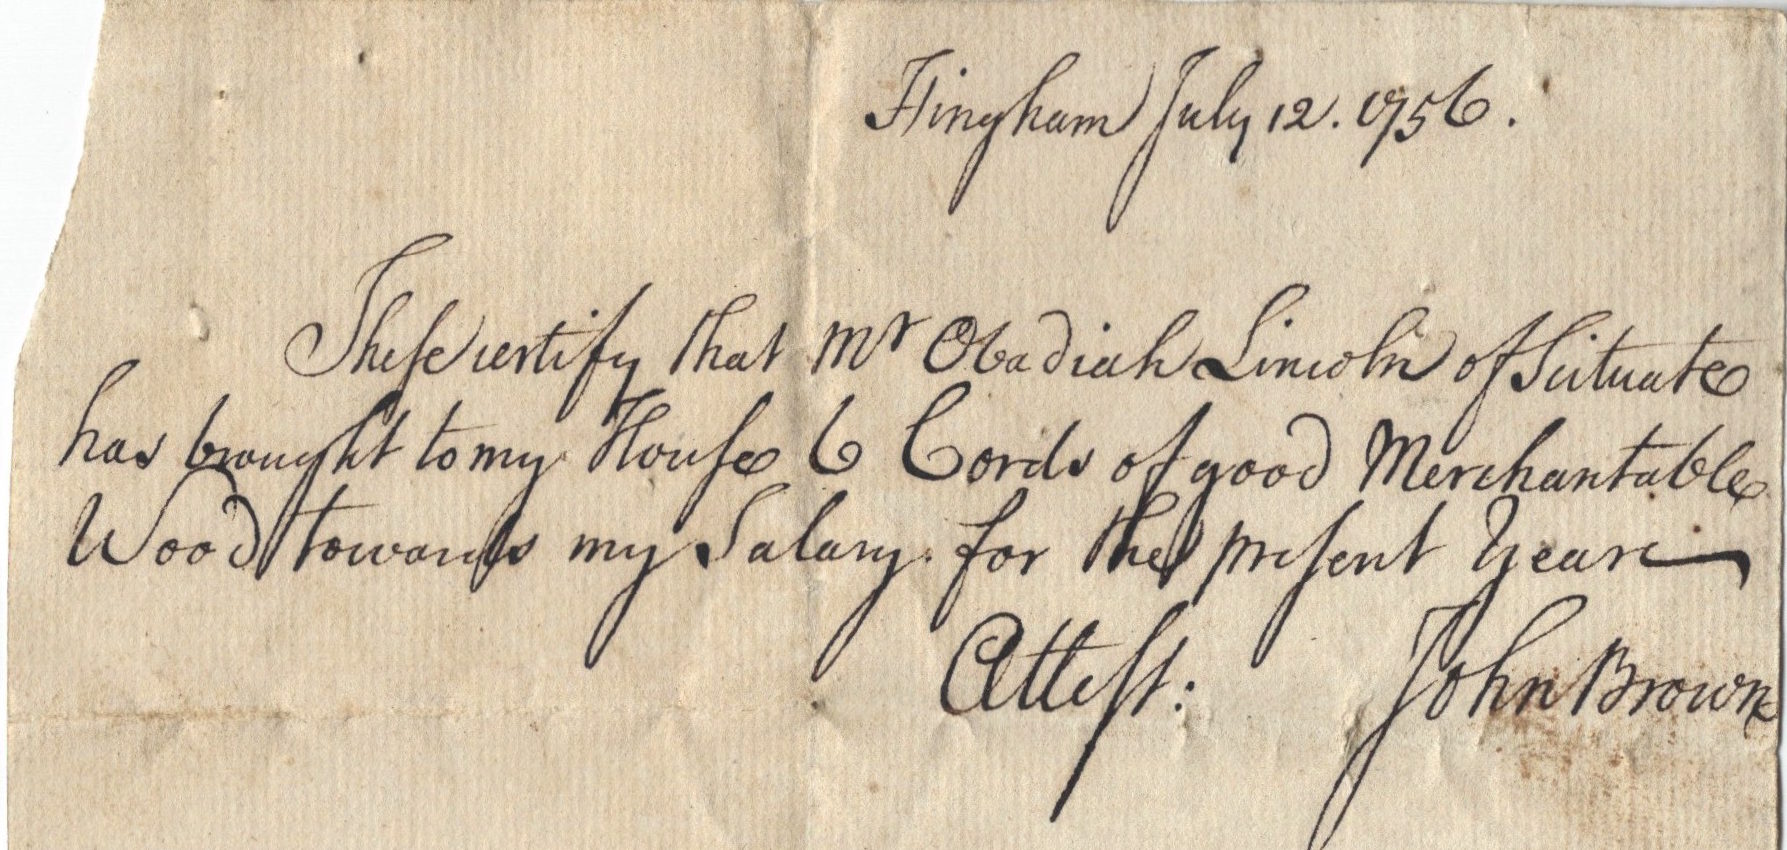 Hingham July 12. 1756.
These certify that Mr Obadiah Lincoln of Scituate
has brought to my House 6 Cords of good Merchantable
Wood towards my Salary for the present Year
Attest: John Brown